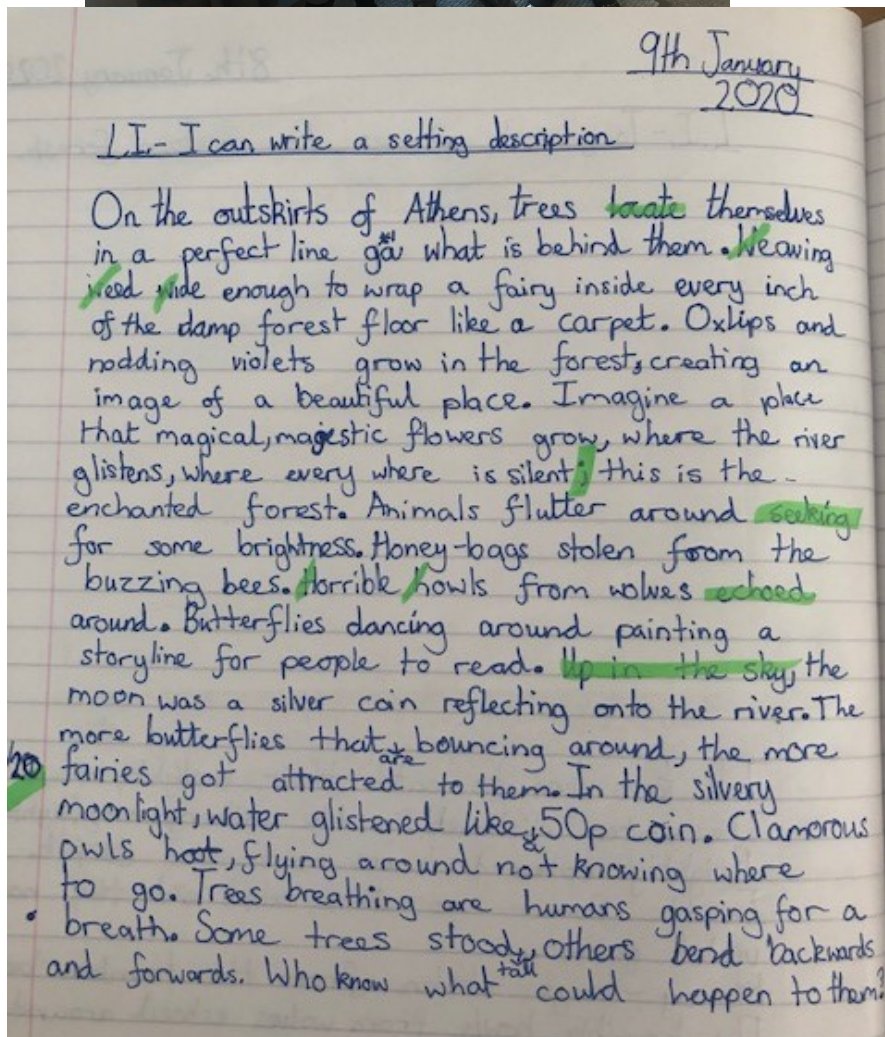 9th January
2020
LI.- I can write a setting description
On the outskirts of Athens, trees locate themselves
in a perfect line what is behind them. Weaving
weed wide enough to wrap a fairy inside every inch
of the damp forest floor like a carpet. Oxlips and
nodding violets grow in the forest, creating an
image of a beautiful place. Imagine a place
that magical, majestic flowers grow, where the river
glistens, where every where is silent; this is the
enchanted forest. Animals flutter around seeking
for some brightness. Honey-bags stolen from the
buzzing bees. Horrible howls from wolves echoed
around. Butterflies dancing around painting a
storyline for people to read. Up in the sky, the
moon was a silver coin reflecting onto the river. The
more butterflies that are bouncing around, the more
20 fairies got attracted to them. In the silvery
moonlight, water glistened like a 50p coin. Clamorous
owls hoot, flying around not knowing where
to go. Trees breathing are humans gasping for a
breath. Some trees stood tall, others bend backwards
and forwards. Who know what could happen to them?